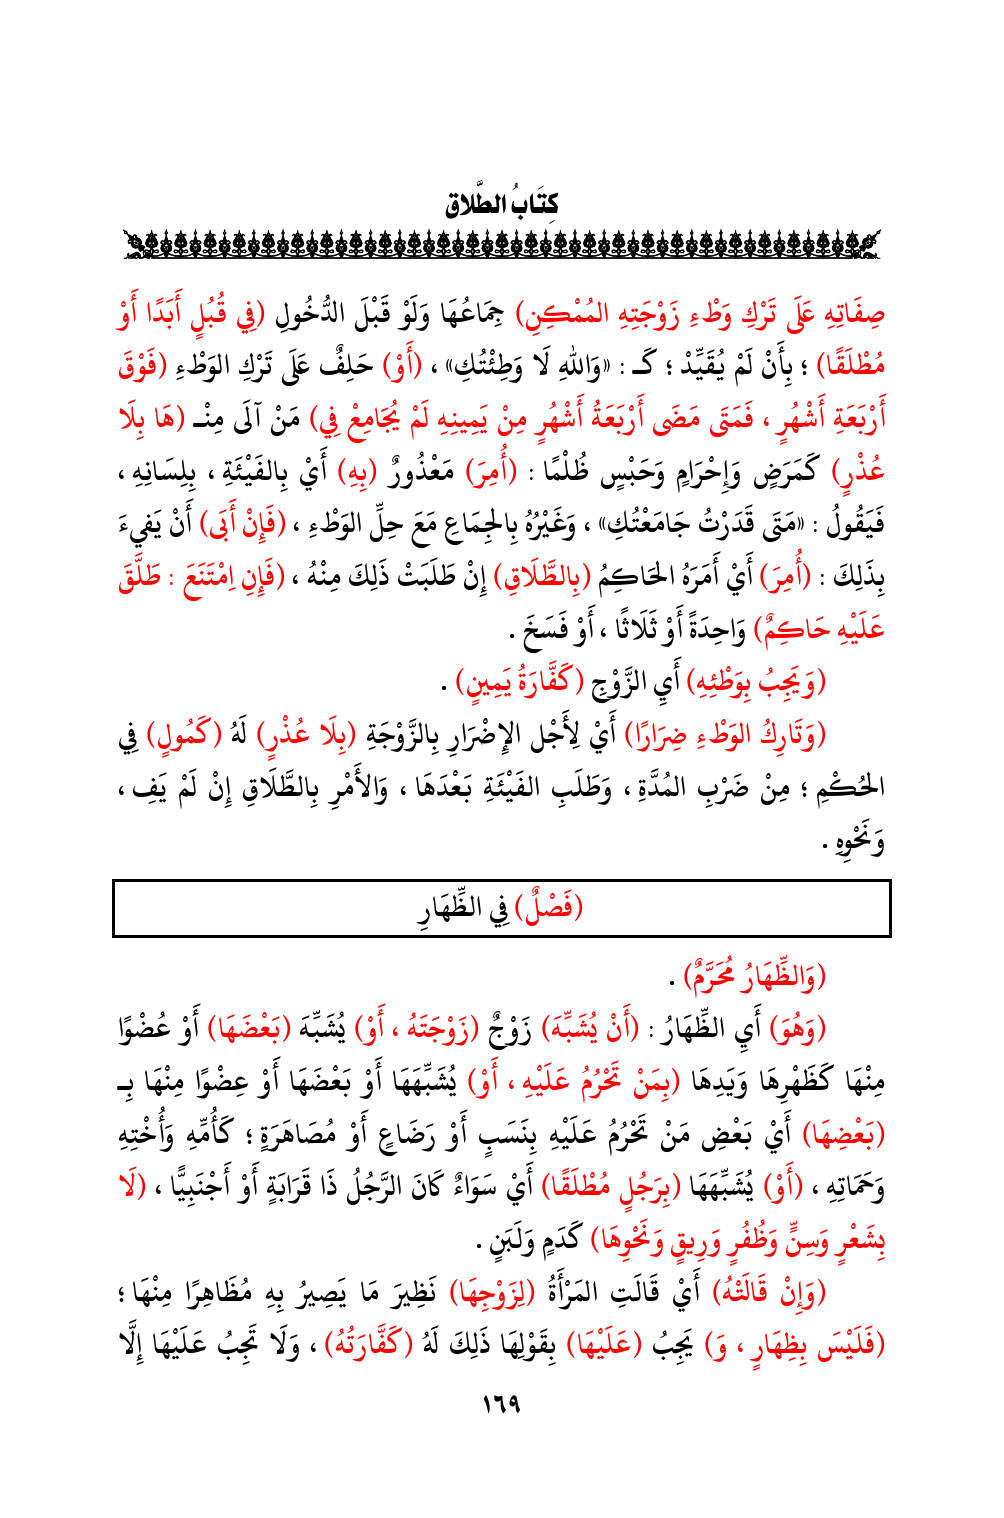 كِتَابُ الطَّلاق
صِفَاتِهِ عَلَى تَرْكِ وَطْءِ زَوْجَتِهِ المُمْكِنِ) جِمَاعُهَا وَلَوْ قَبْلَ الدُّخُولِ (فِي قُبُلٍ أَبَدًا أَوْ
مُطْلَقًا) ؛ بِأَنْ لَمْ يُقَيِّدْ ؛ كَـ : «وَاللهِ لَا وَطِئْتُكِ» ، (أَوْ) حَلِفٌ عَلَى تَرْكِ الوَطْءِ (فَوْقَ
أَرْبَعَةِ أَشْهُرٍ ، فَمَتَى مَضَى أَرْبَعَةُ أَشْهُرٍ مِنْ يَمِينِهِ لَمْ يُجَامِعْ فِي) مَنْ آلَى مِنْـ (هَا بِلَا
عُذْرٍ) كَمَرَضٍ وَإِحْرَامٍ وَحَبْسٍ ظُلْمًا : (أُمِرَ) مَعْذُورٌ (بِهِ) أَيْ بِالفَيْئَةِ ، بِلِسَانِهِ ،
فَيَقُولُ : «مَتَى قَدَرْتُ جَامَعْتُكِ» ، وَغَيْرُهُ بِالجِمَاعِ مَعَ حِلِّ الوَطْءِ ، (فَإِنْ أَبَى) أَنْ يَفِيءَ
بِذَلِكَ : (أُمِرَ) أَيْ أَمَرَهُ الحَاكِمُ (بِالطَّلَاقِ) إِنْ طَلَبَتْ ذَلِكَ مِنْهُ ، (فَإِنِ اِمْتَنَعَ : طَلَّقَ
عَلَيْهِ حَاكِمٌ) وَاحِدَةً أَوْ ثَلَاثًا ، أَوْ فَسَخَ .
(وَيَجِبُ بِوَطْئِهِ) أَيِ الزَّوْجِ (كَفَّارَةُ يَمِينٍ) .
(وَتَارِكُ الوَطْءِ ضِرَارًا) أَيْ لِأَجْل الإِضْرَارِ بِالزَّوْجَةِ (بِلَا عُذْرٍ) لَهُ (كَمُولٍ) فِي
الحُكْمِ ؛ مِنْ ضَرْبِ المُدَّةِ ، وَطَلَبِ الفَيْئَةِ بَعْدَهَا ، وَالأَمْرِ بِالطَّلَاقِ إِنْ لَمْ يَفِ ،
وَنَحْوِهِ .
(فَصْلٌ) فِي الظِّهَارِ
(وَالظِّهَارُ مُحَرَّمٌ) .
(وَهُوَ) أَيِ الظِّهَارُ : (أَنْ يُشَبِّهَ) زَوْجٌ (زَوْجَتَهُ ، أَوْ) يُشَبِّهَ (بَعْضَهَا) أَوْ عُضْوًا
مِنْهَا كَظَهْرِهَا وَيَدِهَا (بِمَنْ تَحْرُمُ عَلَيْهِ ، أَوْ) يُشَبِّهَهَا أَوْ بَعْضَهَا أَوْ عِضْوًا مِنْهَا بِـ
(بَعْضِهَا) أَيْ بَعْضِ مَنْ تَحْرُمُ عَلَيْهِ بِنَسَبٍ أَوْ رَضَاعٍ أَوْ مُصَاهَرَةٍ ؛ كَأُمِّهِ وَأُخْتِهِ
وَحَمَاتِهِ ، (أَوْ) يُشَبِّهَهَا (بِرَجُلٍ مُطْلَقًا) أَيْ سَوَاءٌ كَانَ الرَّجُلُ ذَا قَرَابَةٍ أَوْ أَجْنَبِيًّا ، (لَا
بِشَعْرٍ وَسِنٍّ وَظُفُرٍ وَرِيقٍ وَنَحْوِهَا) كَدَمٍ وَلَبَنٍ .
(وَإِنْ قَالَتْهُ) أَيْ قَالَتِ المَرْأَةُ (لِزَوْجِهَا) نَظِيرَ مَا يَصِيرُ بِهِ مُظَاهِرًا مِنْهَا ؛
(فَلَيْسَ بِظِهَارٍ ، وَ) يَجِبُ (عَلَيْهَا) بِقَوْلِهَا ذَلِكَ لَهُ (كَفَّارَتُهُ) ، وَلَا تَجِبُ عَلَيْهَا إِلَّا
١٦٩